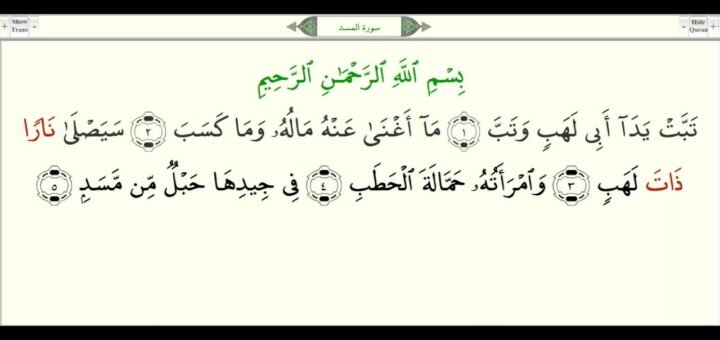 Show Trans
سورة المسد
Hide Quran
بِسْمِ ٱللَّهِ ٱلرَّحْمَـٰنِ ٱلرَّحِيمِ
تَبَّتْ يَدَآ أَبِى لَهَبٍ وَتَبَّ ١ مَآ أَغْنَىٰ عَنْهُ مَالُهُۥ وَمَا كَسَبَ ٢ سَيَصْلَىٰ نَارًا
ذَاتَ لَهَبٍ ٣ وَٱمْرَأَتُهُۥ حَمَّالَةَ ٱلْحَطَبِ ٤ فِى جِيدِهَا حَبْلٌ مِّن مَّسَدٍۭ ٥